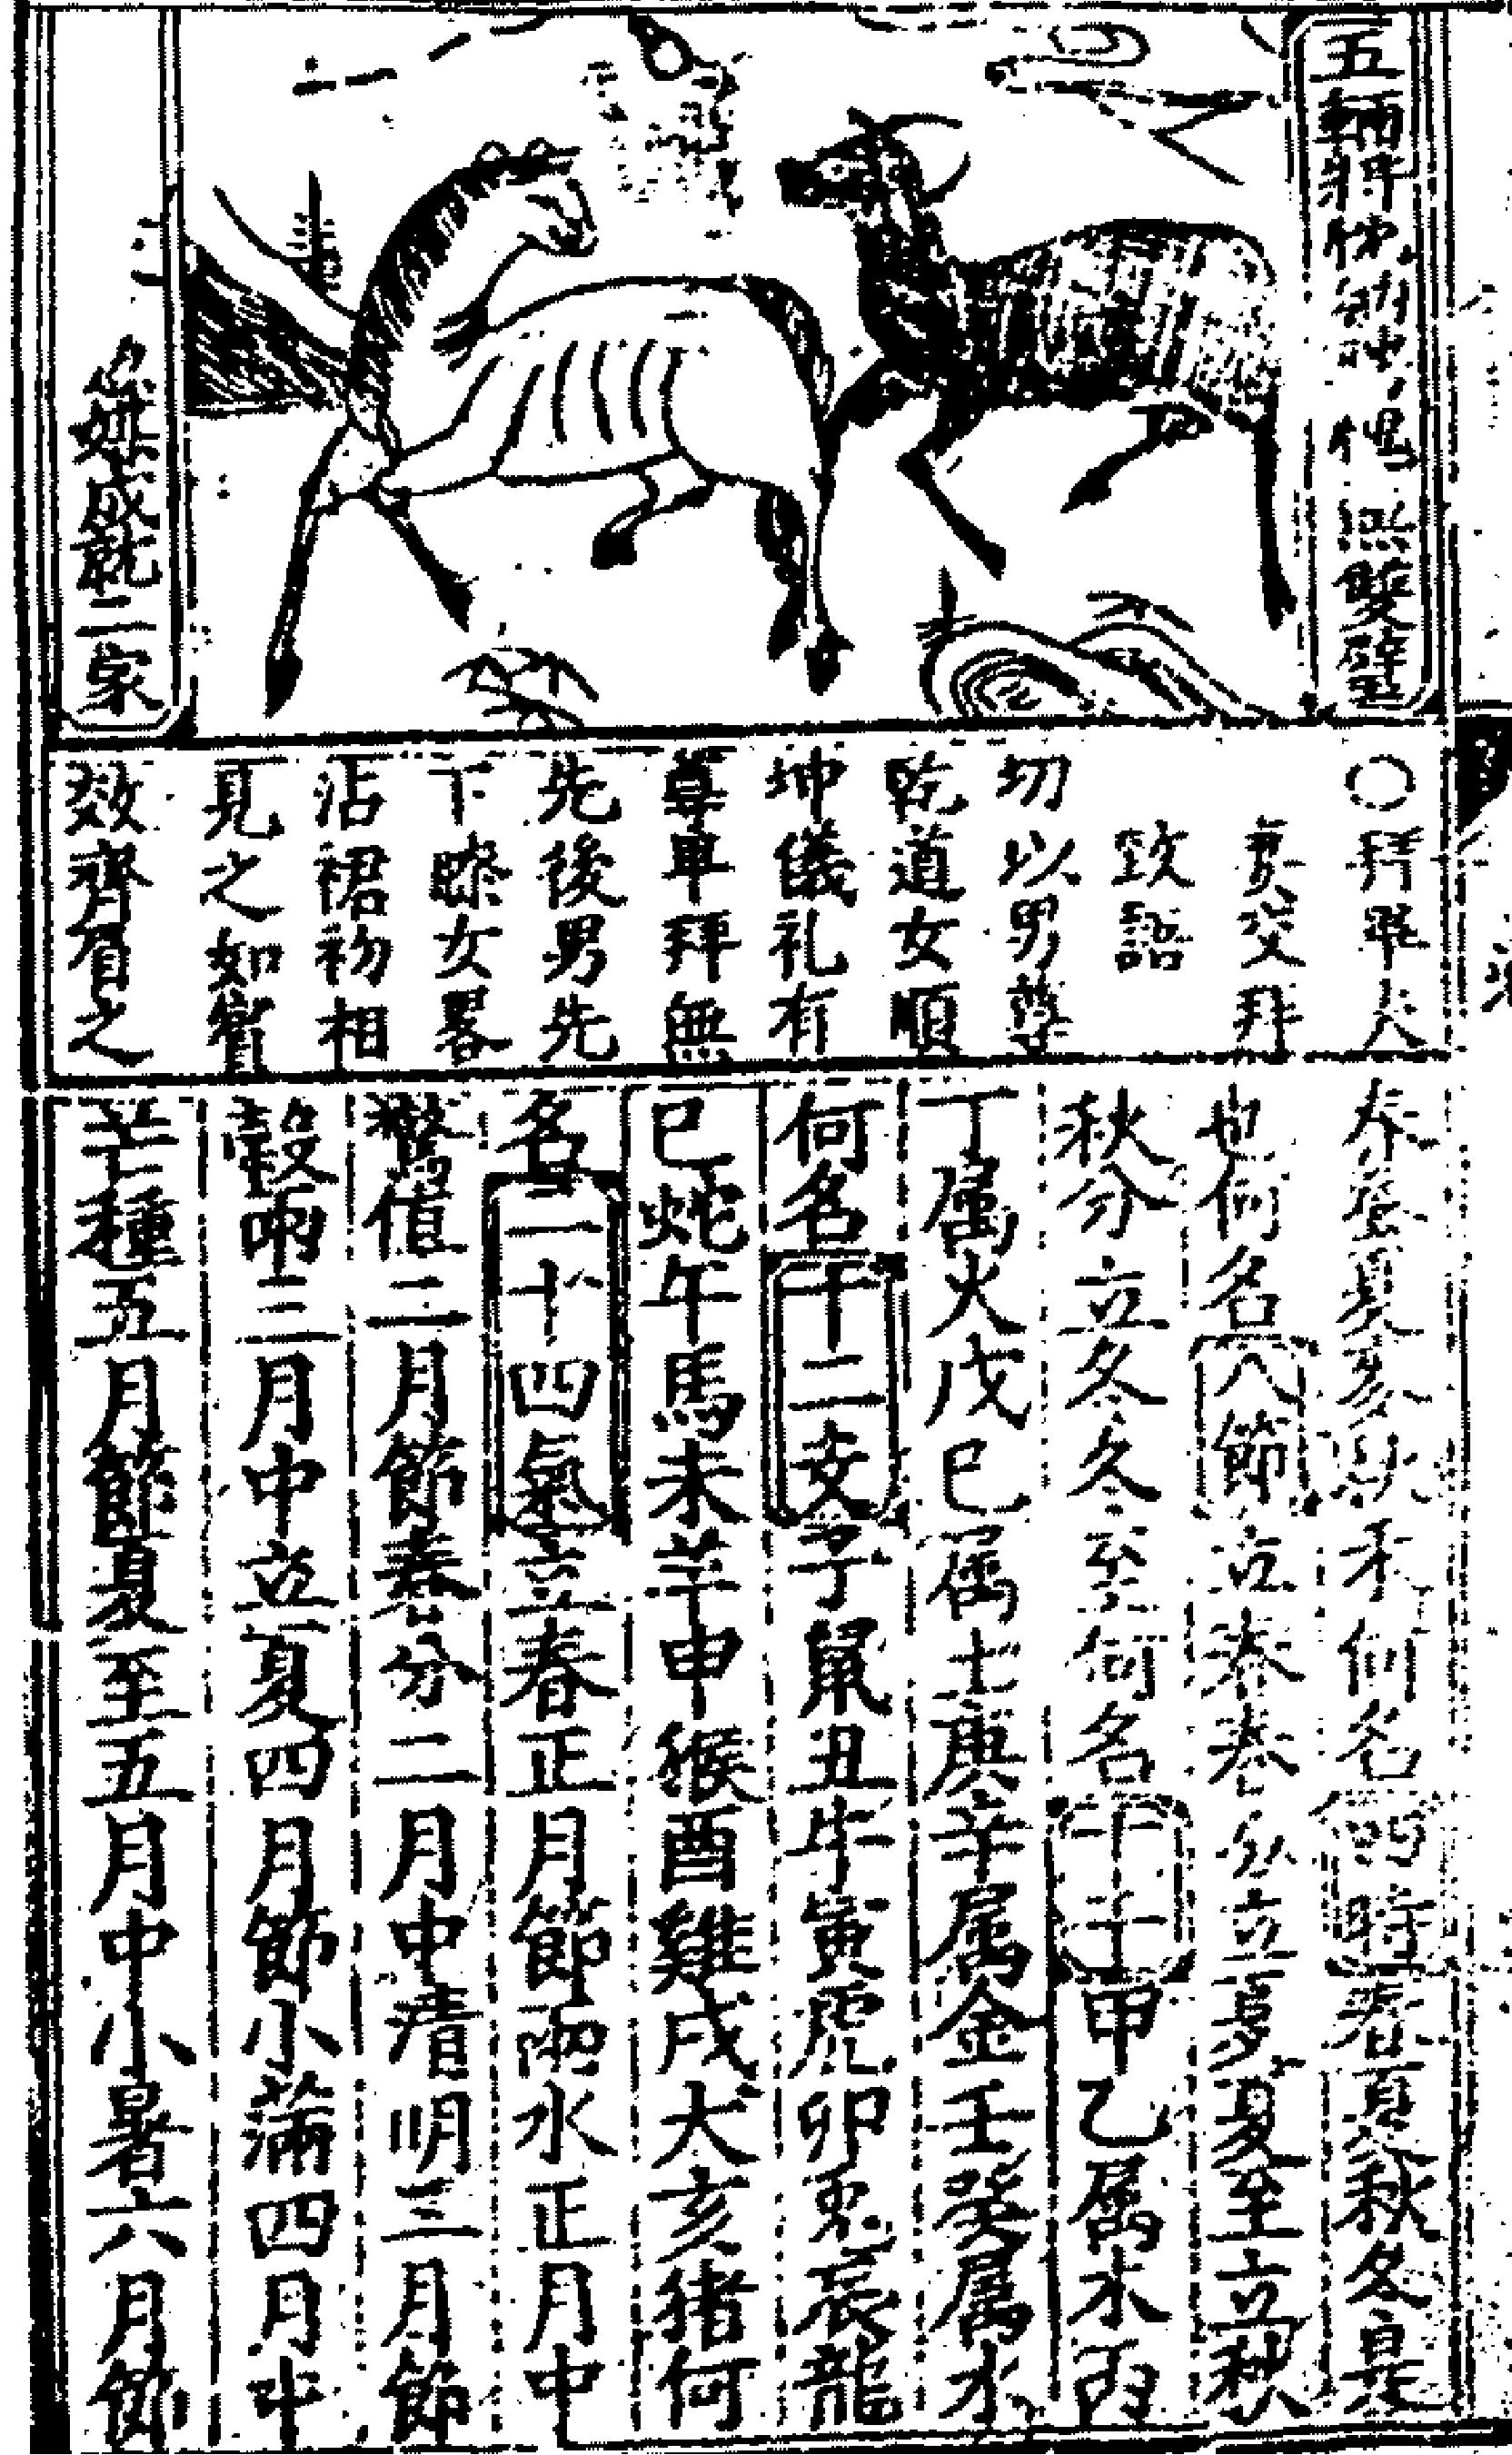 五輛將
雙璧
成就二家
○拜畢夫
妻交拜
致語
切以男尊
乾道女順
坤儀礼有
尊卑拜無
先後男先
下瞭女畧
沾裙初相
見之如賓
效齊眉之
禾何名四時春夏秋冬是
也何名八節立春春分立夏夏至立秋
秋分立冬冬至何名十干甲乙属木丙
丁属火戊巳属土庚辛属金壬癸属水
何名十二支子鼠丑牛寅虎卯兎辰龍
巳蛇午馬未羊申猴酉雞戌犬亥猪何
名二十四氣立春正月節雨水正月中
驚值二月節春分二月中清明三月節
穀雨三月中立夏四月節小滿四月中
芒種五月節夏至五月中小暑六月節